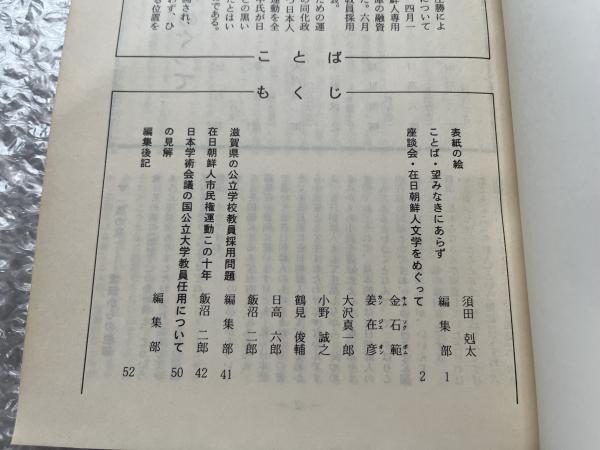 圧勝によ
について
四月一
鮮人専用
庫の融資
た。六月
教員採用
会。
ための運
の同化政
つ日本人
運動を全
氏が日
この黒い
たとはい
である。
され、
わず、ひ
る位置を
ことば
もくじ
表紙の絵 須田 剋太
ことば・望みなきにあらず 編集部 1
座談会・在日朝鮮人文学をめぐって 金石範 キムソクポム 2
姜在彦 カンジェオン
大沢真一郎
小野 誠之
鶴見 俊輔
日高 六郎
飯沼 二郎
滋賀県の公立学校教員採用問題 編集部 41
在日朝鮮人市民権運動この十年 飯沼 二郎 42
日本学術会議の国公立大学教員任用について
の見解 50
編集後記 編集部 52